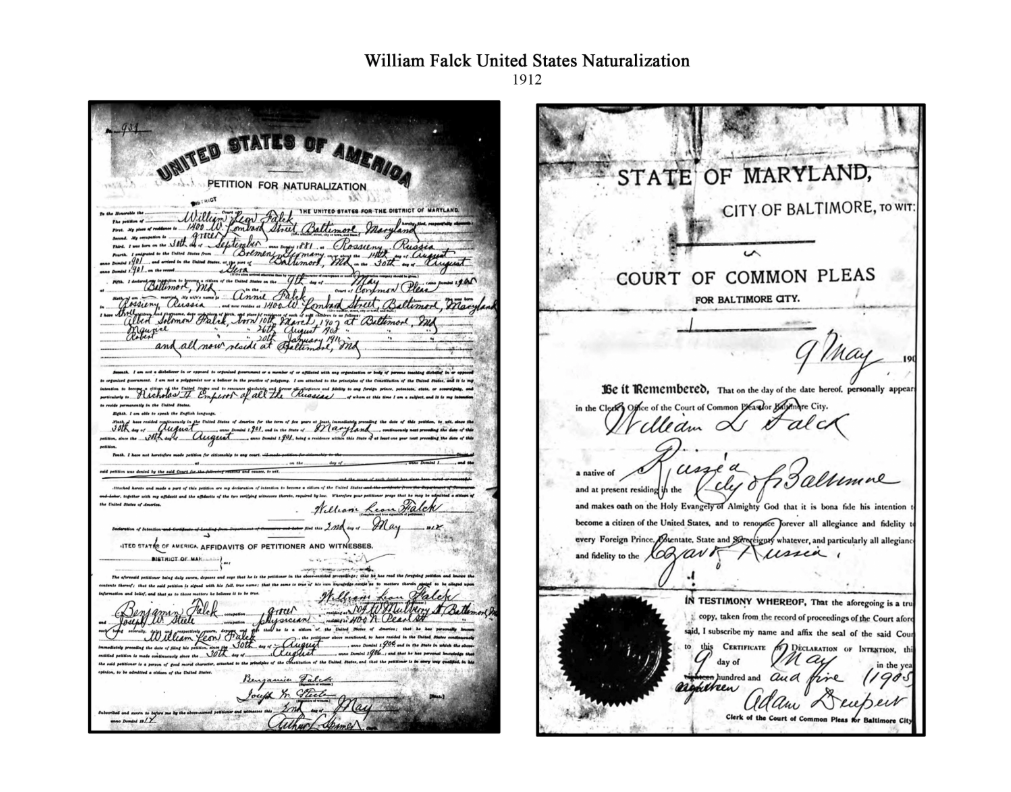 William Falck United States Naturalization
1912
No. 939
UNITED STATES OF AMERICA
PETITION FOR NATURALIZATION
DISTRICT
To the Honorable the THE UNITED STATES FOR THE DISTRICT OF MARYLAND.
The petition of William Leon Falck
First. My place of residence is 1400 W Lombard Street Baltimore, Maryland
Second. My occupation is grocer
Third. I was born on the 30th day of September anno Domini 1881 Rossieny Russia
Fourth. I emigrated to the United States from Bremen, Germany on or about the 14th day of August
anno Domini 1901, and arrived in the United States, at the port of Baltimore, Md on the 30th day of August
anno Domini 1901, on the vessel Gera
Fifth. I declared my intention to become a citizen of the United States on the 9th day of May anno Domini 1905
at Baltimore, Md in the Court of Common Pleas
Sixth. I am married. My wife's name is Annie Falck
in Rossieny Russia and now resides at 1400 W. Lombard Street, Baltimore, Maryland
Albert Solomon Falck, born 10th March, 1907 at Baltimore, Md
Maurice " 26th August 1908 " " "
Robert " 20th January 1911 " " "
and all now reside at Baltimore, Md
Seventh. I am not a disbeliever in or opposed to organized government or a member of or affiliated with any organization or body of persons teaching disbelief in or opposed
to organized government. I am not a polygamist nor a believer in the practice of polygamy. I am attached to the principles of the Constitution of the United States, and it is my
intention to become a citizen of the United States and to renounce absolutely and forever all allegiance and fidelity to any foreign prince, potentate, state, or sovereignty, and
particularly to Nicholas II Emperor of all the Russias of whom at this time I am a subject, and it is my intention
to reside permanently in the United States.
Eighth. I am able to speak the English language.
Ninth. I have resided continuously in the United States of America for the term of five years at least, immediately preceding the date of this petition, to wit, since the
30th day of August anno Domini 1901, and in the State of Maryland continuously next preceding the date of this
petition, since the 30th day of August anno Domini 1901, being a residence within this State of at least one year next preceding the date of this
petition.
Tenth. I have not heretofore made petition for citizenship to any court.
at on the day of anno Domini 1 and the
said petition was denied by the said Court for the following reasons and causes, to wit,
Attached hereto and made a part of this petition are my declaration of intention to become a citizen of the United States
and Labor, together with my affidavit and the affidavits of the two verifying witnesses thereto, required by law. Wherefore your petitioner prays that he may be admitted a citizen of
the United States of America.
William Leon Falck
Declaration of Intention filed this 2nd day of May 1912
UNITED STATES OF AMERICA, AFFIDAVITS OF PETITIONER AND WITNESSES.
DISTRICT OF MARYLAND
The aforesaid petitioner being duly sworn, deposes and says that he is the petitioner in the above-entitled proceedings; that he has read the foregoing petition and knows the
contents thereof; that the said petition is signed with his full, true name; that the same is true of his own knowledge except as to matters therein stated to be alleged upon
information and belief, and that as to those matters he believes it to be true.
William Leon Falck
Benjamin Falck occupation grocer 704 W Mulberry St Baltimore Md
and Joseph W. Steele occupation physician 400 N. Pearl St
William Leon Falck the petitioner above mentioned, to have resided in the United States continuously
immediately preceding the date of filing his petition, since the 30th day of August
entitled petition is made continuously since the 30th day of August
the said petitioner is a person of good moral character, attached to the principles of the Constitution of the United States, and that the petitioner is in every way qualified, in his
opinion, to be admitted a citizen of the United States.
Benjamin Falck
Subscribed and sworn to before me by the above-named petitioner and witnesses this 2nd day of May
anno Domini 1912
STATE OF MARYLAND,
CITY OF BALTIMORE, TO WIT:
COURT OF COMMON PLEAS
FOR BALTIMORE CITY.
9 May 190
Be it Remembered, That on the day of the date hereof, personally appear
in the Clerk's Office of the Court of Common Pleas for Baltimore City.
William L Falck
a native of Russia
and at present residing in the City of Baltimore
and makes oath on the Holy Evangely of Almighty God that it is bona fide his intention t
become a citizen of the United States, and to renounce forever all allegiance and fidelity t
every Foreign Prince, Potentate, State and Sovereignty whatever, and particularly all allegianc
and fidelity to the Czar of Russia.
IN TESTIMONY WHEREOF, That the aforegoing is a tru
copy, taken from the record of proceedings of the Court afore
said, I subscribe my name and affix the seal of the said Cour
to this CERTIFICATE OF DECLARATION OF INTENTION, thi
9 day of May in the yea
eighteen hundred and and five (1905
Adam Deupert
Clerk of the Court of Common Pleas for Baltimore City